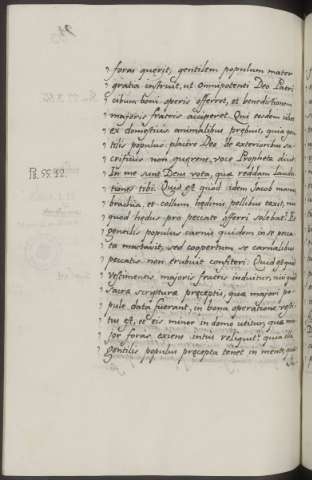 foras querit, gentilem populum mater
gratia instruit, ut omnipotenti Deo Patri
cibum boni operis offerret, et benedictionem
majoris fratris acciperet. Qui eosdem cibos
ex domesticis animalibus prębuit, quia gen
tilis populus placere Deo de exterioribus sa
crificiis non quęrens, voce Prophetę dicit:
In me sunt Deus vota, quę reddam Lauda
Ps. 55. 12.
tiones tibi. Quid est quod idem Jacob manus
brachia, et collum hędinis pellibus texit, nisi
quod hędus pro peccato offerri solebat? Et
gentilis populus carnis quidem in se pecca
ta mactavit, sed coopertum se carnalibus
peccatis non erubuit confiteri. Quid est quod
vestimentis majoris fratris induitur, nisi quod
sacrę scripturę pręceptis, quę majori po
pulo data fuerant, in bona operatione vesti
tus est, et eis minor in domo utitur, quę ma
jor foras exiens intus reliquit? quia illa
gentilis populus pręcepta tenet in mente, quę